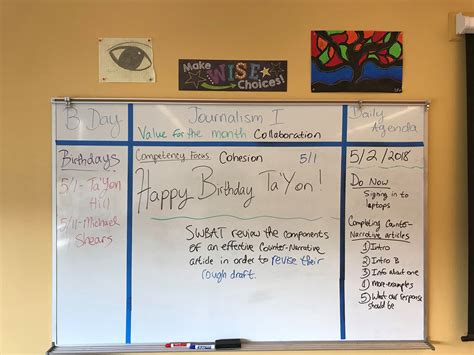 Make
WISE
Choices!
B Day
Journalism I
Daily
Agenda
Value for the month Collaboration
Birthdays
5/1 - Ta'Yon
Hill
5/11 - Michael
Shears
Competency Focus: Cohesion 5/1
Happy Birthday Ta'Yon!
SWBAT review the components
of an effective Counter-Narrative
article in order to revise their
rough draft.
5/2/2018
Do Now
Signing in to
laptops
Completing Counter-
Narrative articles
1 Intro
2 Intro B
3 Info about one
4 more examples
5 What our response
should be